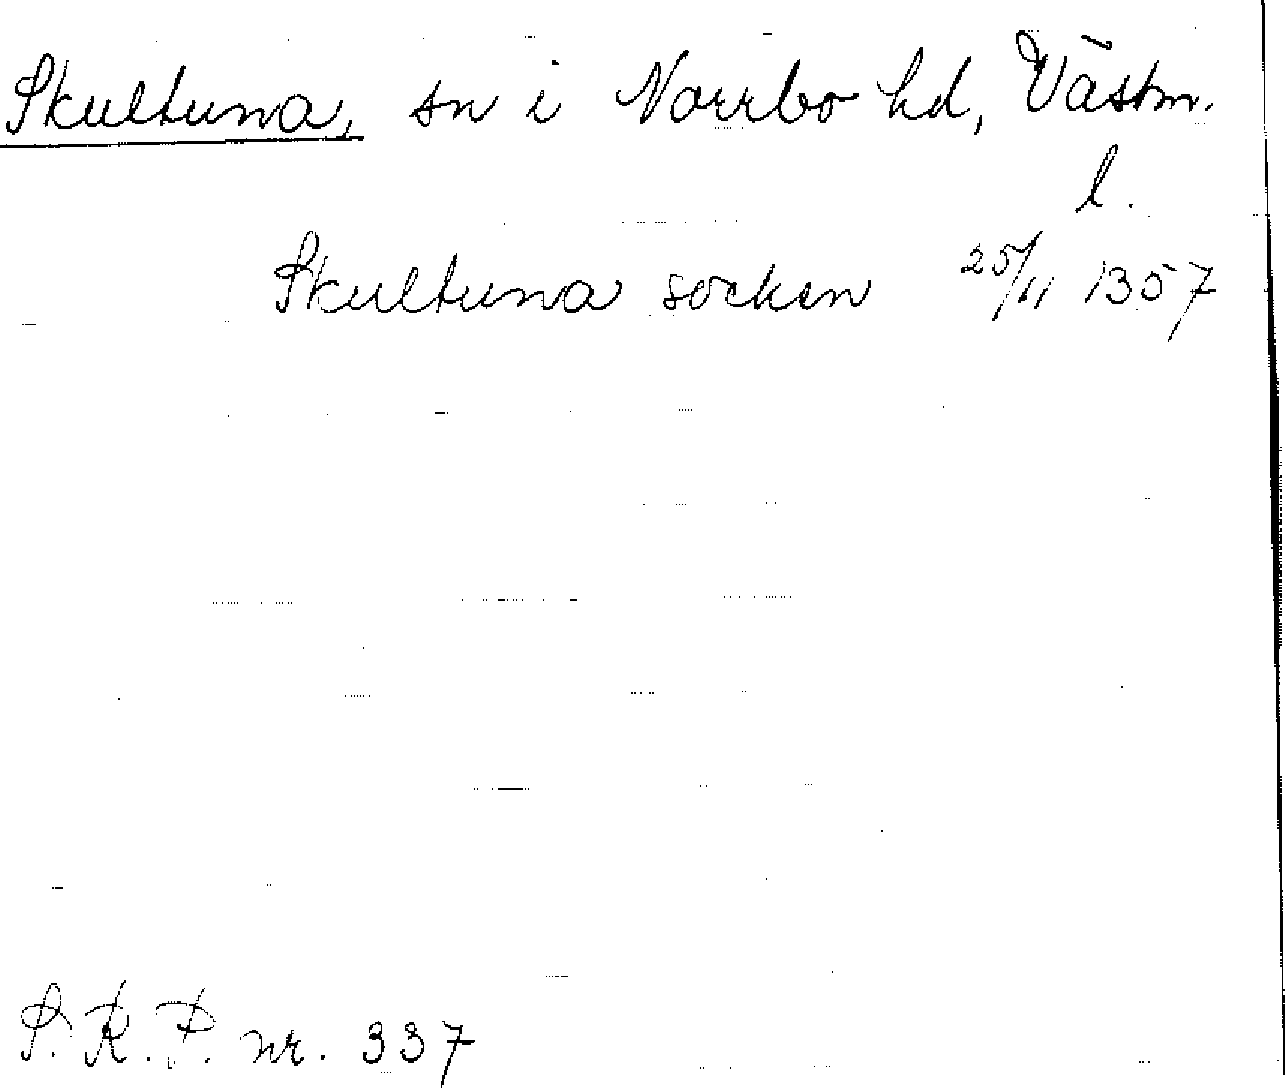 Skultuna, sn i Norrbo hd, Västm.
l.
Skultuna socken 25/11 1357
S.R.P. nr. 337